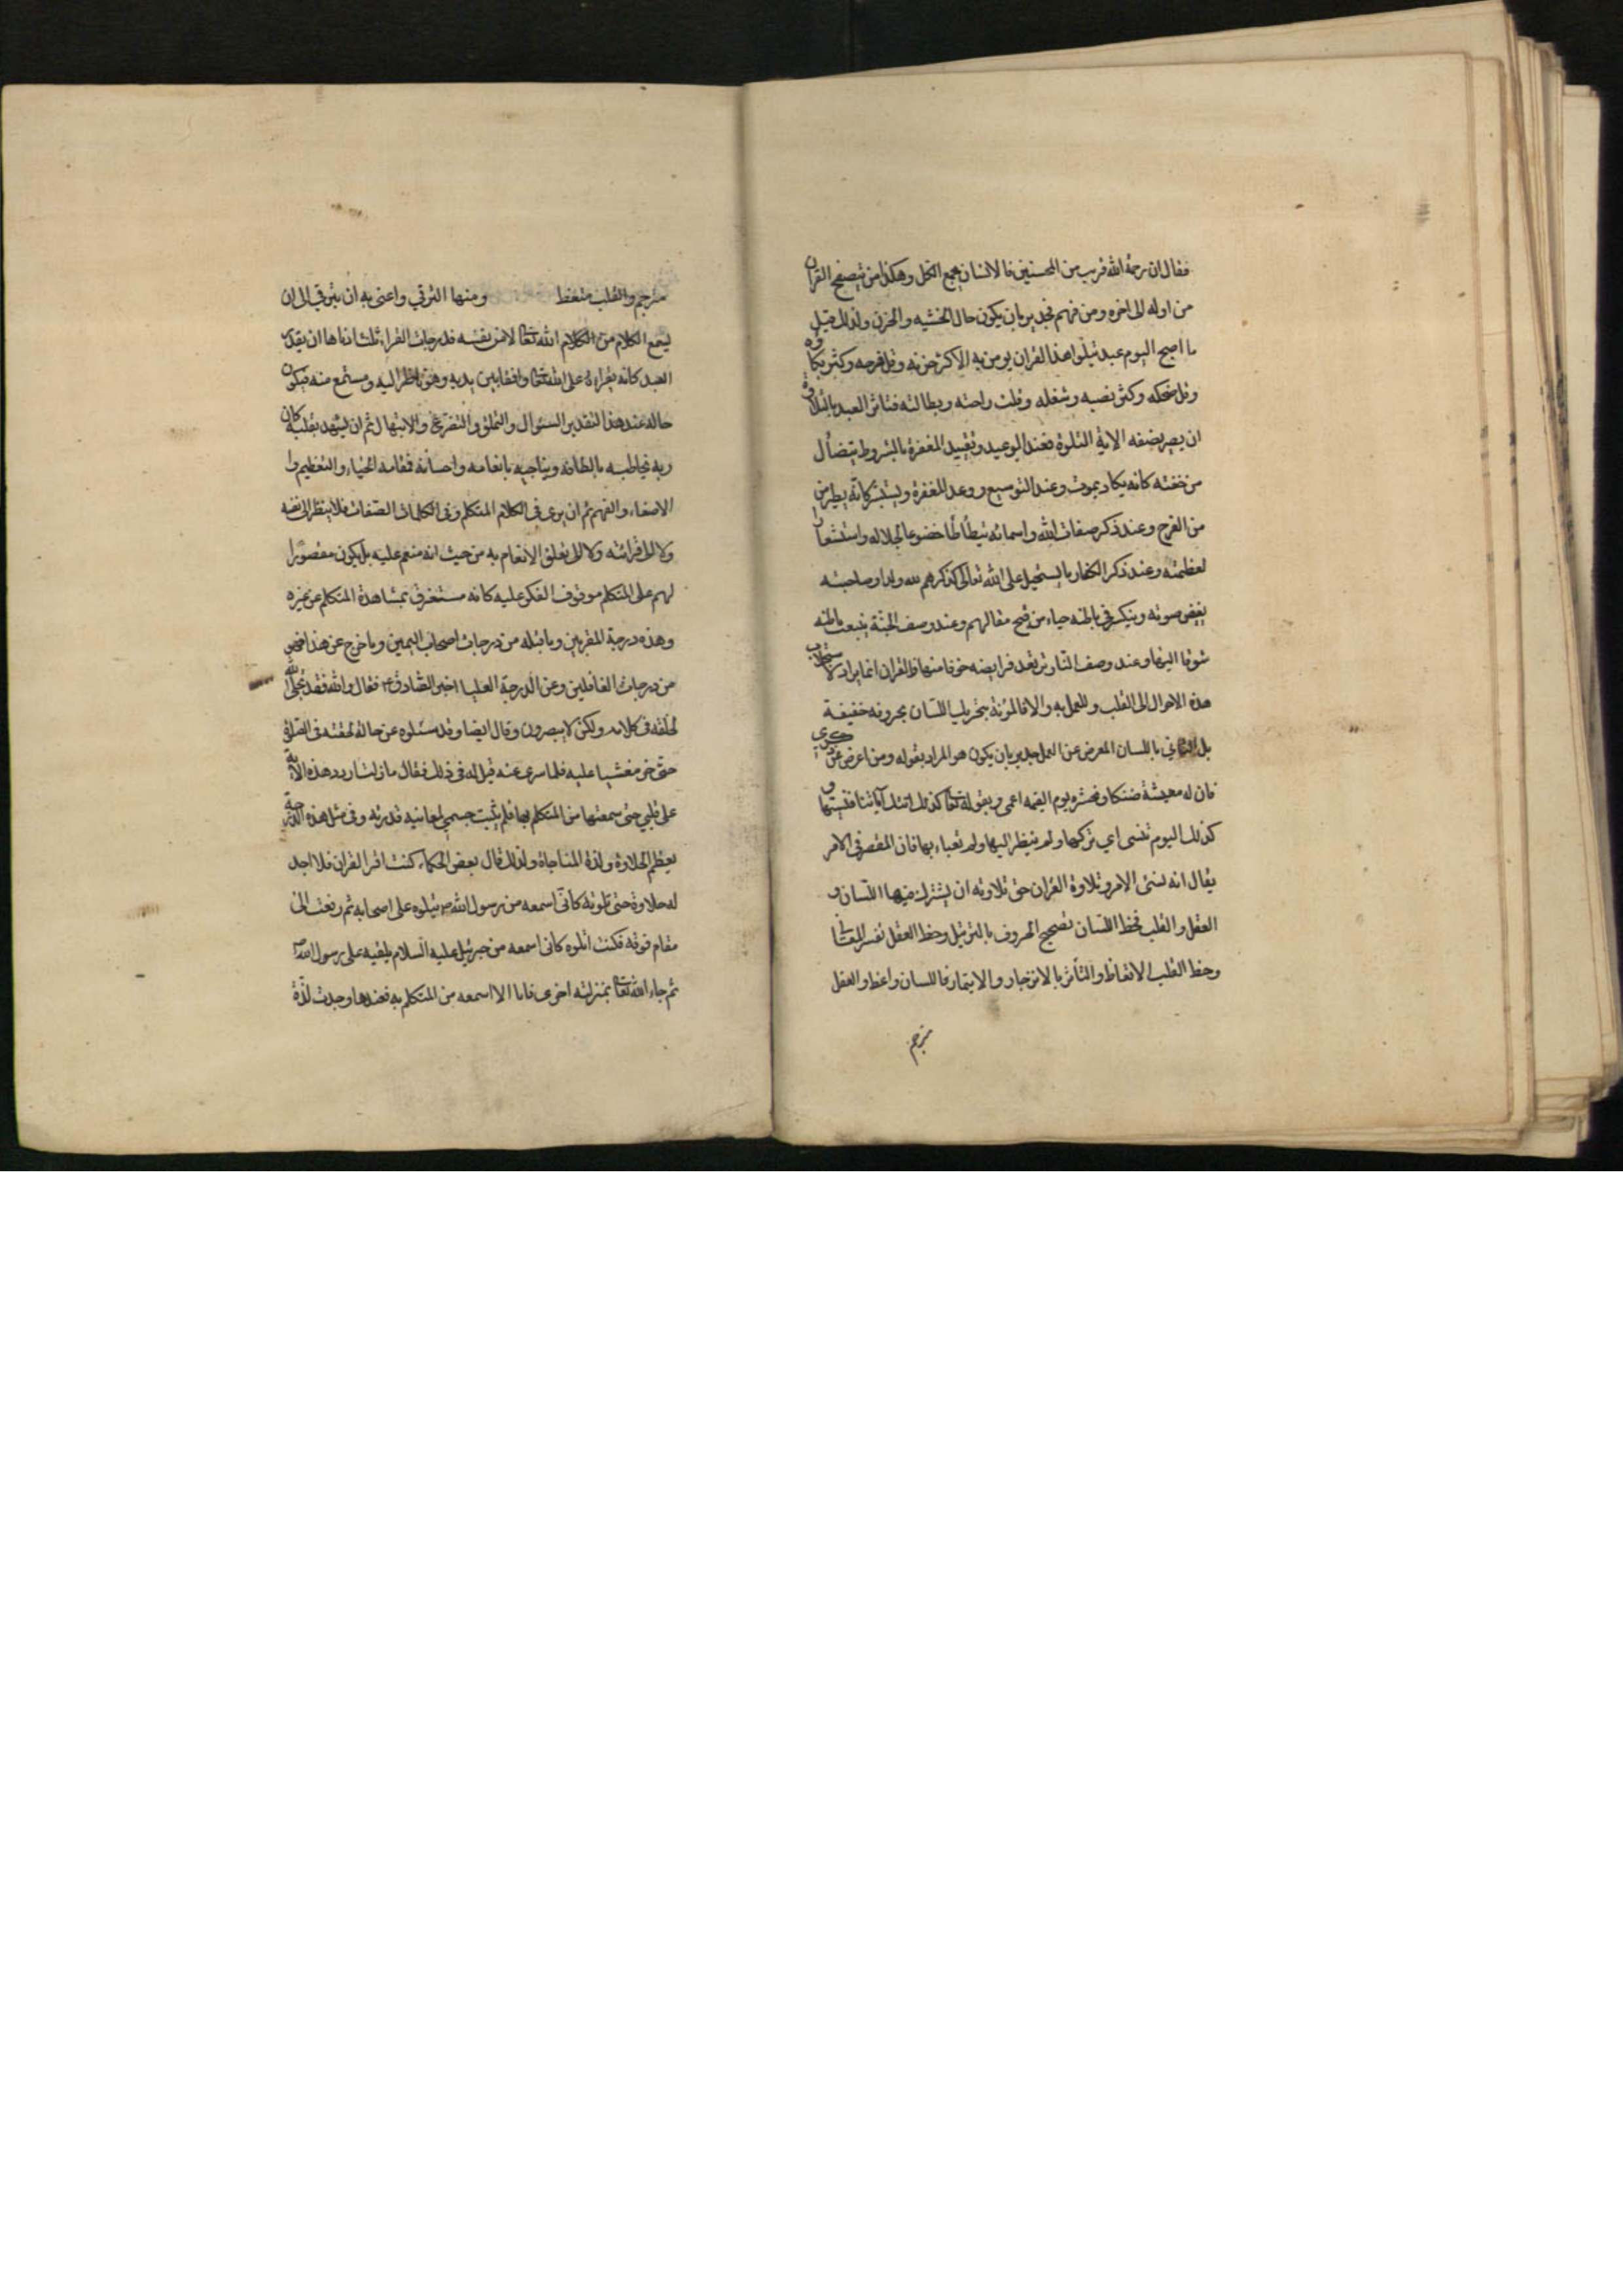 فقال ان رحمة الله قريب من المحسنين فالاحسان يجمع الكل وهكذا من يتصفح القران
من اوله الى اخره ومن فهم فجدير بان يكون حاله الخشيه والحزن ولذلك قيل
ما اصبح اليوم عبد يتلوا هذا القران يومن به الا كثر حزنه وقل فرحه وكثر بكاؤه
وقل ضحكه وكثر نصبه وشغله وقلت راحته وبطالته فتاثر العبد بالتلاوة
ان يصير بصفه الاية المتلوة فعند الوعيد وتقييد المغفرة بالشروط يتضأل
من خفته كانه يكاد يموت وعند التوسيع ووعد المغفرة ويستبشر كانه يطير من
من الفرح وعند ذكر صفات الله واسمائه يتطأطأ خضوعا لجلاله واستشعارا
لعظمته وعند ذكر الكفار ما يستحيل على الله تعالى كذكرهم لله ولدا وصاحبته
يغض صوته وينكسر في باطنه حياء من قبح مقالهم وعند وصف الجنة ينبعث باطنه
شوقا اليها وعند وصف النار ترتعد فرايضه خوفا منها فالقران انما يراد لاستجلاب
هذه الاحوال الى القلب وللعمل به والا فالمؤنة بتحريك اللسان بحروفه خفيفة
بل التالي باللسان المعرض عن العمل جدير بان يكون هو المراد بقوله ومن اعرض عن ذكري
فان له معيشة ضنكا ونحشره يوم القيمه اعمى وبقوله تعا كذلك اتتك آياتنا فنسيتها و
كذلك اليوم تنسى اي تركتها ولم ينظر اليها ولم تعباء بها فان المقصر في الامر
يقال انه نسى الامر وتلاوة القران حق تلاوته ان يشترك فيها اللسان و
العقل والقلب فحظ اللسان تصحيح الحروف بالترتيل وحظ العقل تفسير المعانى
وحظ القلب الاتعاظ والتأثر بالانزجار والايتمار فاللسان واعظ والعقل
مترجم
مترجم والقلب متعظ ومنها الترقي واعنى به ان يترقي الى ان
يسمع الكلام من الكلام الله تعا لا من نفسه فدرجات القراءة ثلث ادناها ان يقدر
العبد كانه يقراءه على الله تعا واقفا بين يديه وهو ناظر اليه ومستمع منه فيكون
حاله عند هذا التقدير السئوال والتملق والتضرع والابتهال ثم ان يشهد بقلبه كان
ربه يخاطبه بالطافه ويناجيه بانعامه واحسانه فمقامه الحياء والتعظيم وا
الاصغاء والفهم ثم ان يرى فى الكلام المتكلم وفى الكلمات الصفات فلا ينظر الى نفسه
ولا الى قرائته ولا الى تعلق الانعام به من حيث انه منعم عليه بل يكون مقصورا
لهم على المتكلم موقوف الفكر عليه كانه مستغرق بمشاهدة المتكلم عن غيره
وهذه درجة المقربين وما قبله من درجات اصحاب اليمين وما خرج عن هذا فهو
من درجات الغافلين وعن الدرجة العليا اخبر الصادق ع فقال والله فقد تجلى الله
لخلقه فى كلامه ولكن لا يبصرون وقال ايضا وقد سئلوه عن حالة لحقته فى الصلوة
حتى خر مغشيا عليه فلما سرى عنه قيل له فى ذلك فقال ما زلت اردد هذه الاية
على قلبي حتى سمعتها من المتكلم بها فلم يثبت جسمي لمعاينة قدرته وفى مثل هذه الدرجة
يعظم الحلاوة ولذة المناجاة ولذلك قال بعض الحكماء كنت اقرا القران فلا اجد
له حلاوة حتى تلوته كانى اسمعه من رسول الله ص يتلوه على اصحابه ثم رفعت الى
مقام فوقه فكنت اتلوه كانى اسمعه من جبرئيل عليه السلام يلقيه على رسول الله ص
ثم جاء الله تعا بمنزلته اخرى فانا الا اسمعه من المتكلم به فعندها وجدت لذة